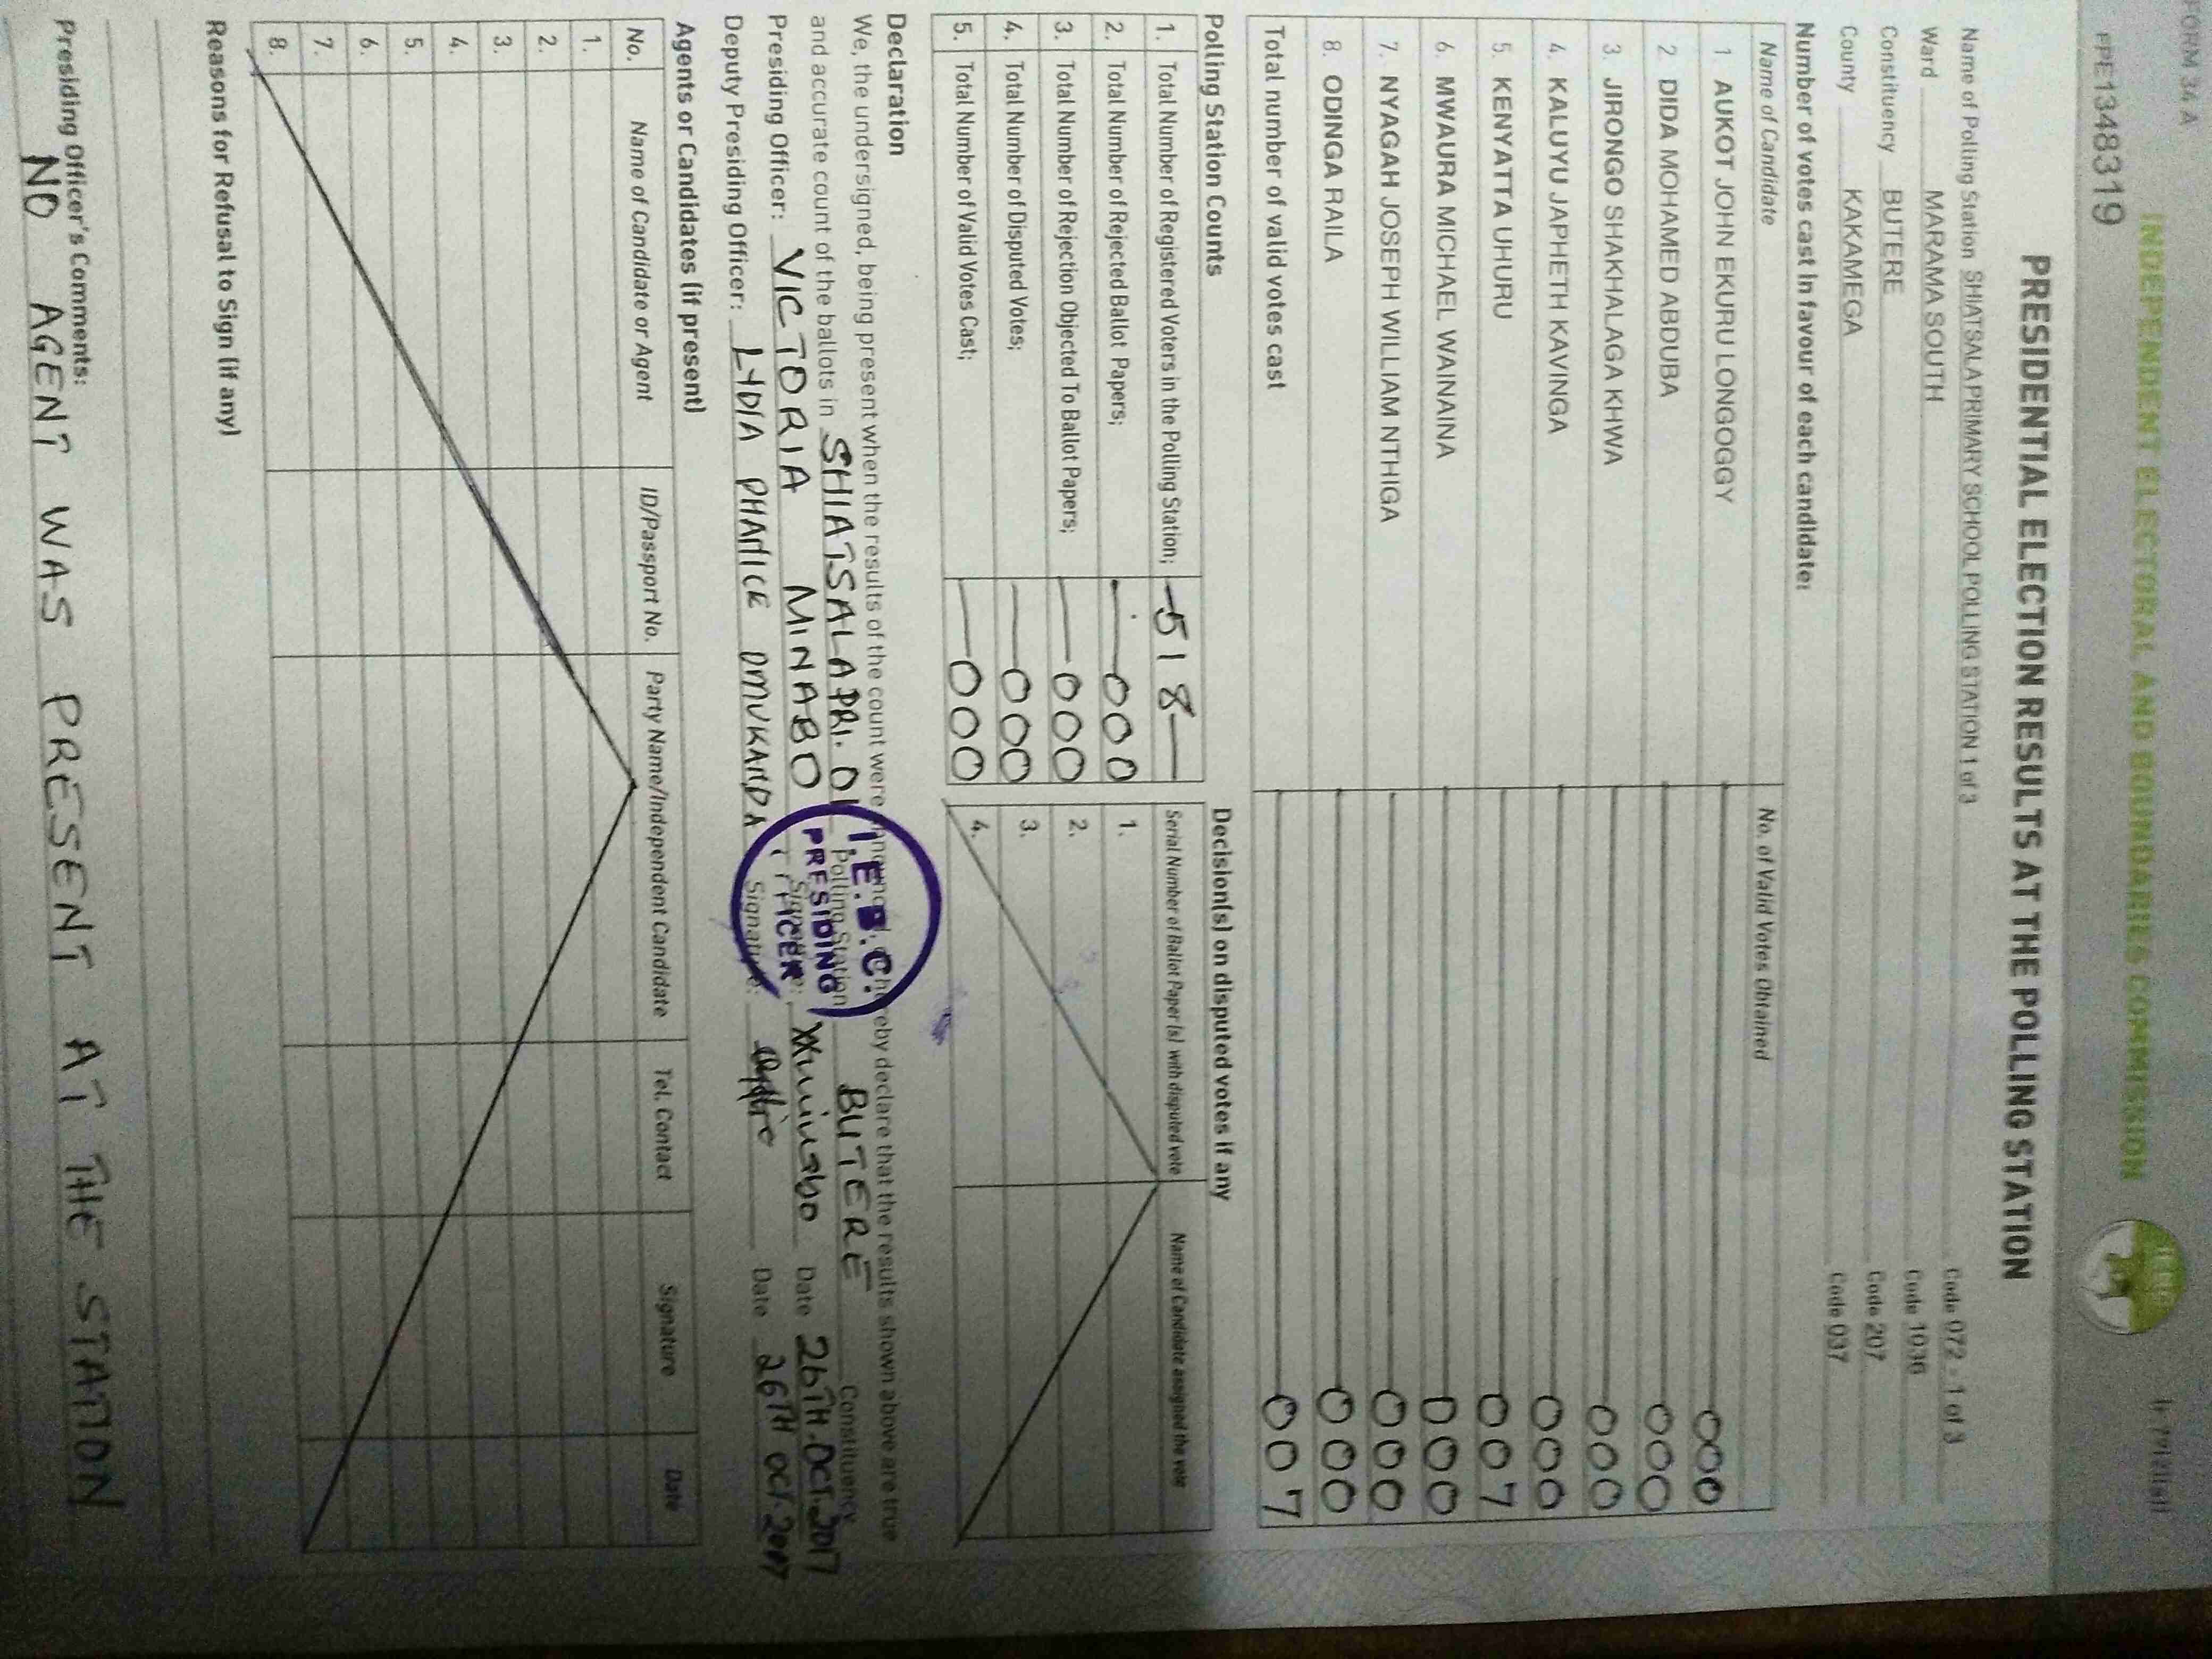 FORM 34 A
INDEPENDENT ELECTORAL AND BOUNDARIES COMMISSION
PPE1348319
PRESIDENTIAL ELECTION RESULTS AT THE POLLING STATION
Name of Polling Station SHIATSALA PRIMARY SCHOOL POLLING STATION 1 of 3 Code 072 - 1 of 3
Ward MARAMA SOUTH Code 1036
Constituency BUTERE Code 207
County KAKAMEGA Code 037
Number of votes cast in favour of each candidate:
Name of Candidate No. of Valid Votes Obtained
1 AUKOT JOHN EKURU LONGOGGY 000
2 DIDA MOHAMED ABDUBA 000
3. JIRONGO SHAKHALAGA KHWA 000
4. KALUYU JAPHETH KAVINGA 000
5. KENYATTA UHURU 007
6. MWAURA MICHAEL WAINAINA 000
7. NYAGAH JOSEPH WILLIAM NTHIGA 000
8. ODINGA RAILA 000
Total number of valid votes cast 007
Polling Station Counts
1. Total Number of Registered Voters in the Polling Station; 518
2. Total Number of Rejected Ballot Papers; 000
3. Total Number of Rejection Objected To Ballot Papers; 000
4. Total Number of Disputed Votes; 000
5. Total Number of Valid Votes Cast; 000
Decision(s) on disputed votes if any
Serial Number of Ballot Paper (s) with disputed vote Name of Candidate assigned the vote
1.
2.
3.
4.
Declaration
We, the undersigned, being present when the results of the count were announced, do hereby declare that the results shown above are true
and accurate count of the ballots in SHIATSALA PRI. 01 Polling Station BUTERE Constituency
Presiding Officer: VICTORIA MINABO Signature: Date 26TH.OCT.2017
Deputy Presiding Officer: LYDIA PHANICE OMUKANDA Signature: Date 26TH OCT.2017
I.E.B.C.
PRESIDING
OFFICER
Agents or Candidates (if present)
No. Name of Candidate or Agent ID/Passport No. Party Name/Independent Candidate Tel. Contact Signature Date
1.
2.
3.
4.
5.
6.
7.
8.
Reasons for Refusal to Sign (if any)
Presiding Officer's Comments:
NO AGENT WAS PRESENT AT THE STATION